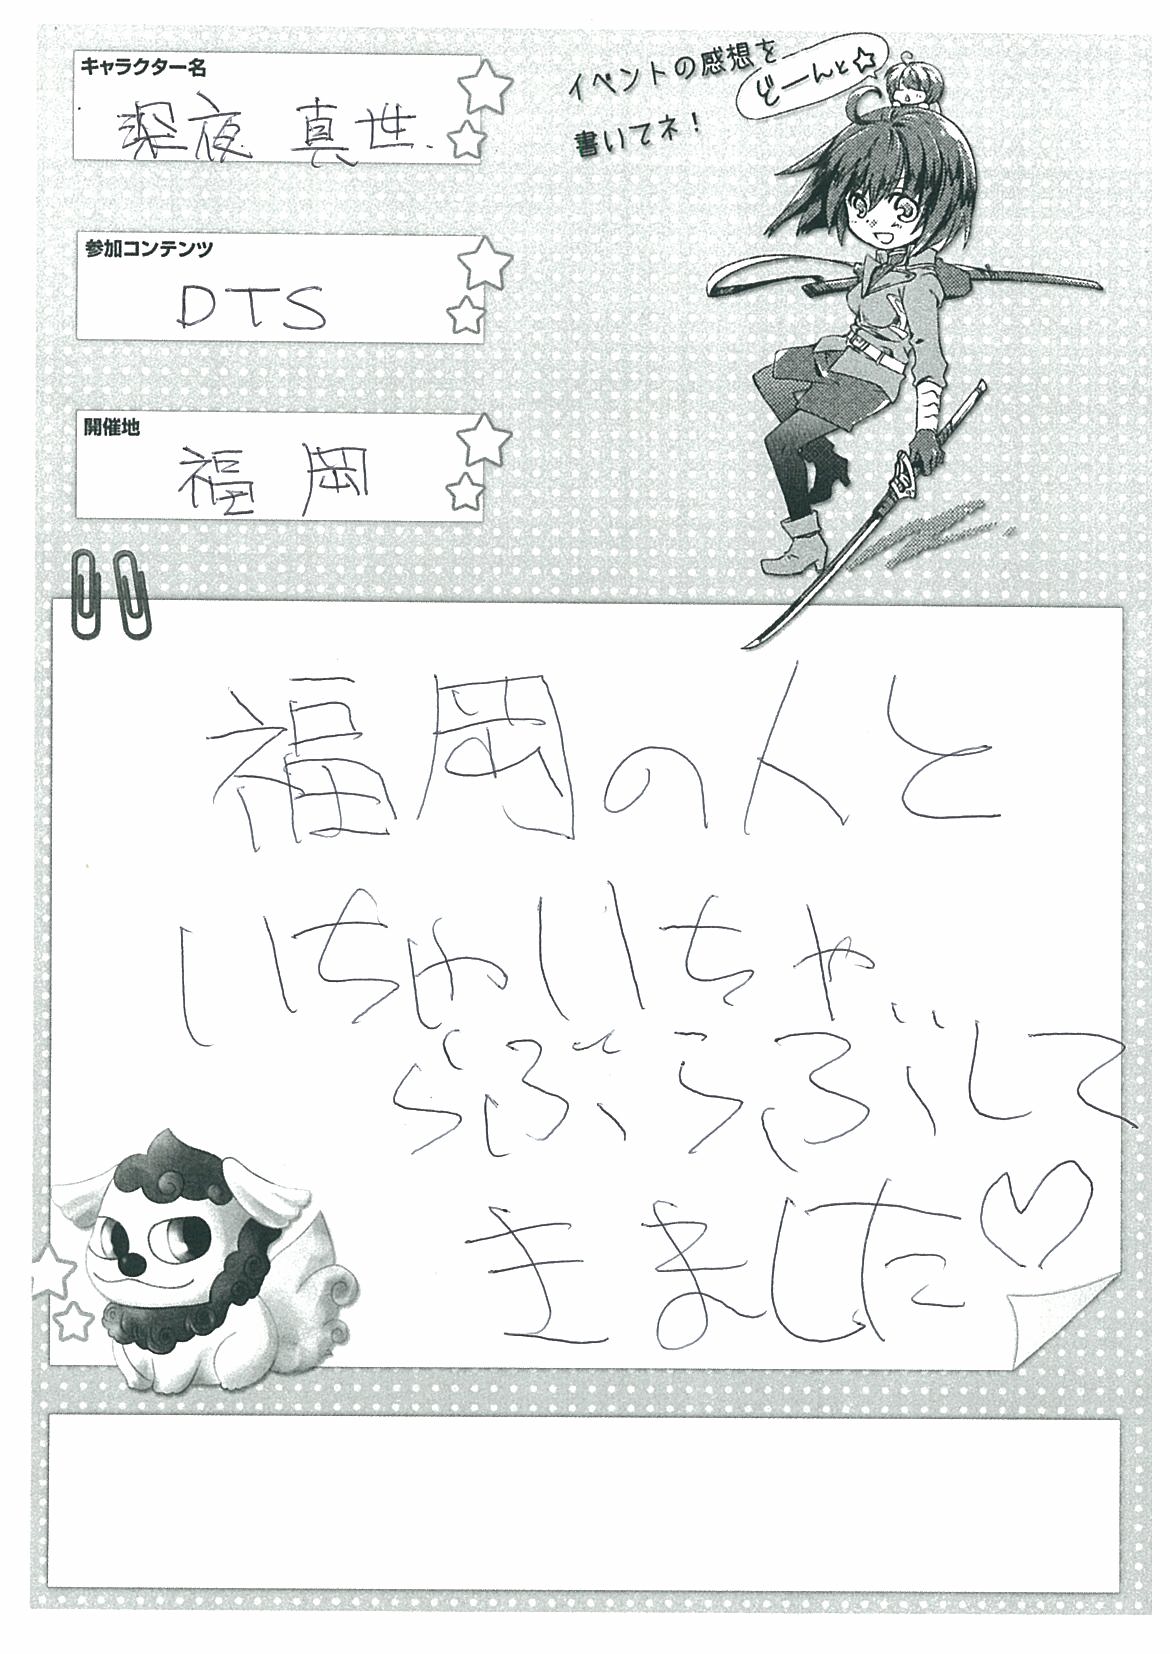 キャラクター名
深夜 真世
イベントの感想を
どーんと☆
書いてネ！
参加コンテンツ
DTS
開催地
福岡
福岡の人と
いちゃいちゃ
らぶらぶして
きました♡